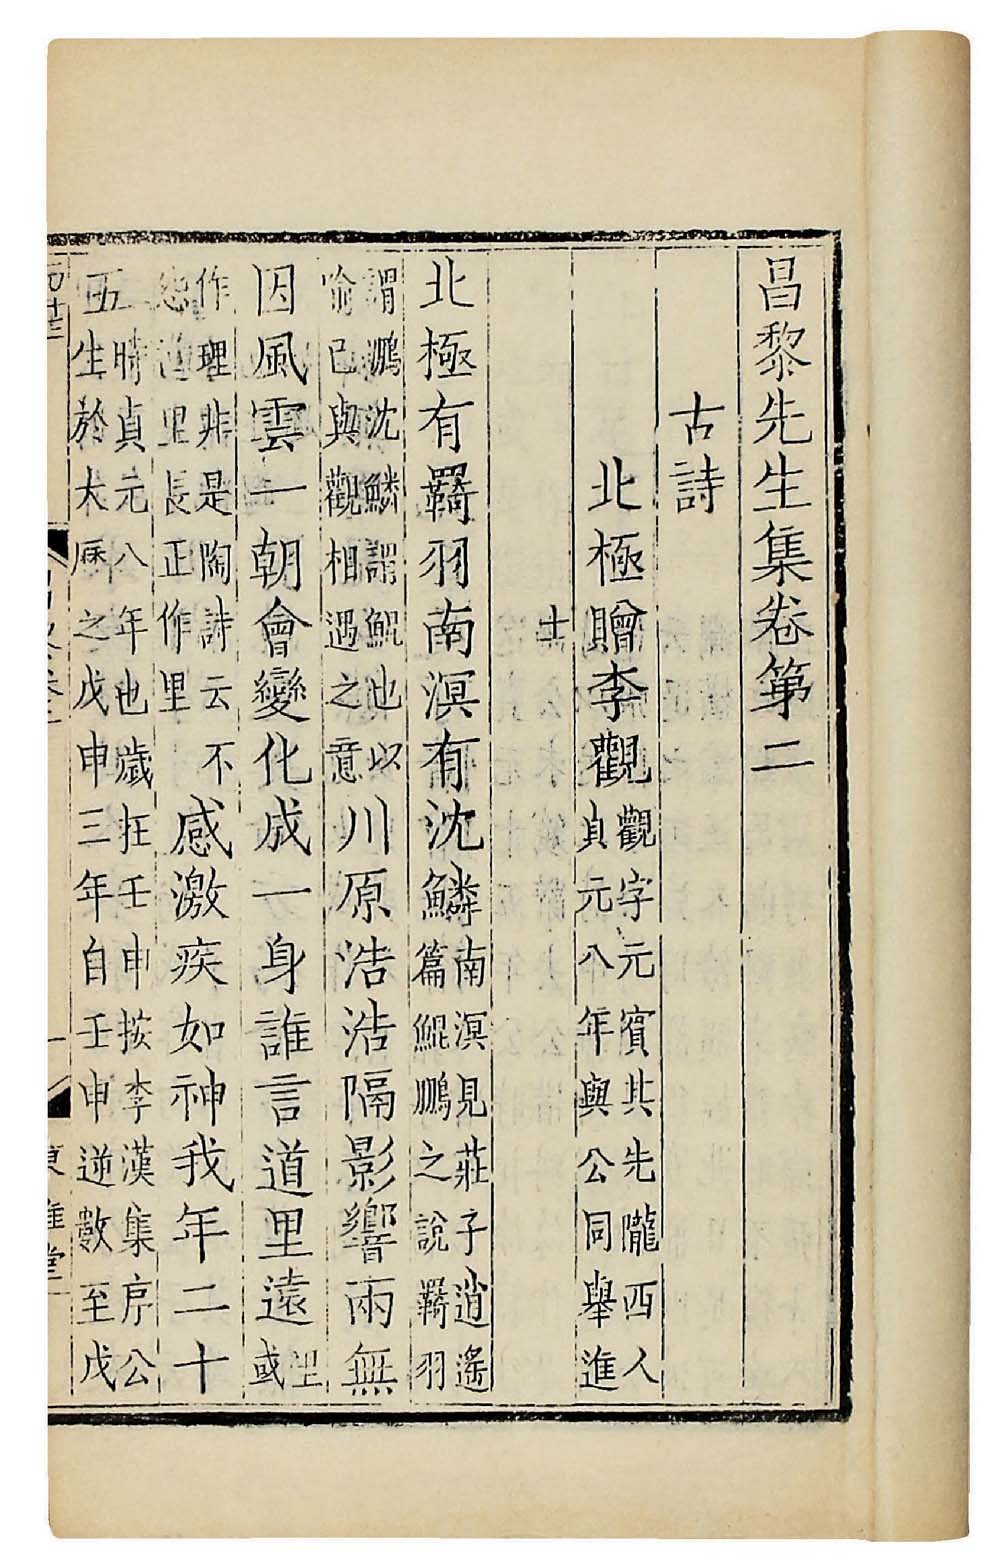 昌黎先生集卷第二
古詩
北極贈李觀觀字元賓其先隴西人貞元八年與公同舉進
士
北極有羇羽南溟有沈鱗南溟見莊子逍遙篇鯤鵬之說羇羽
謂鵬沈鱗謂鯤也以喻已與觀相遇之意川原浩浩隔影響兩無
因風雲一朝會變化成一身誰言道里遠里或
作理非是陶詩云不怨道里長正作里感激疾如神我年二十
五時貞元八年也歲在壬申按李漢集序公生於大曆之戊申三年自壬申逆數至戊
一
東雅堂